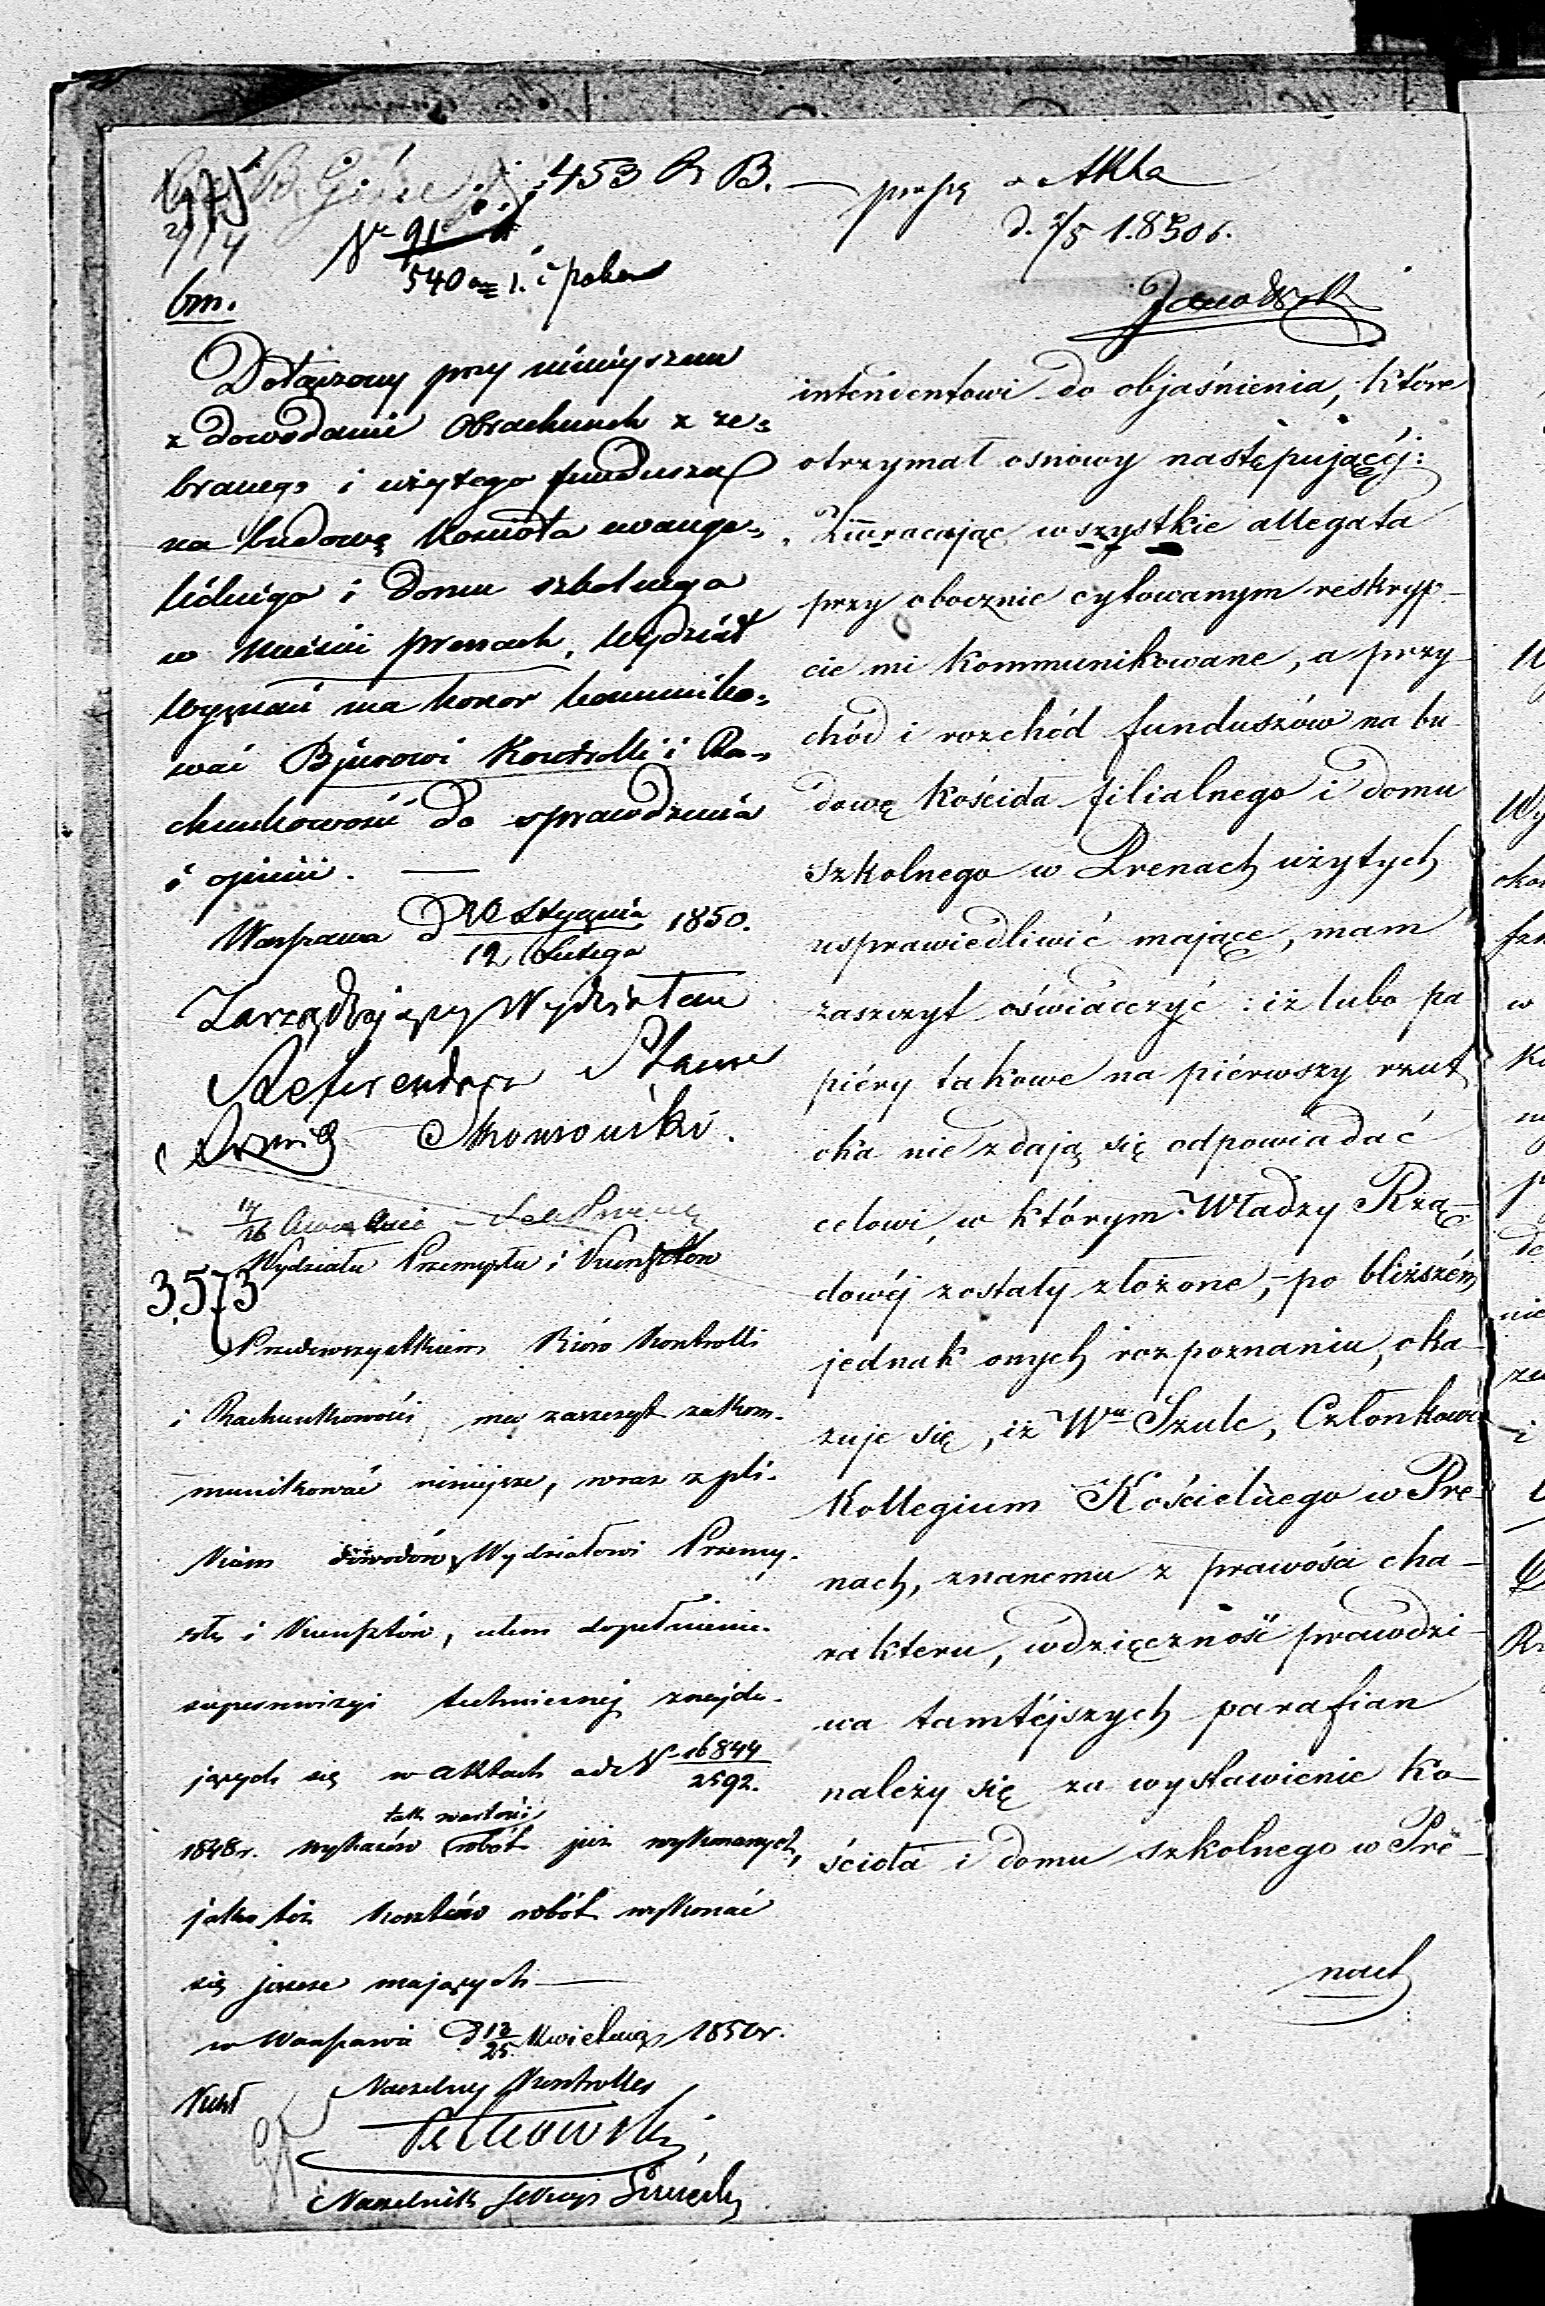 453 R B.
Nr 91
540
bm.
Dołączony przy niniejszem
z dowodami Obrachunek z ze-
branego i użytego funduszu
na budowę kościoła ewange-
lickiego i domu szkolnego
w mieście Prenach, Wydział
Wyznań ma honor kommuniko-
wać Bjurowi Kontrolli i Ra-
chunkowości do sprawdzenia
i opinii. —
Warszawa d 20 Stycznia 1850.
12 Lutego
Zarządzający Wydziałem
Referendarz Stanu
14/26
Wydziału Przemysłu i Kunsztów
3,573
Przedewszystkiem Bióro Kontrolli
i Rachunkowości, ma zaszczyt zakom-
munikować niniejsze, wraz z pli-
kiem dowodów, Wydziałowi Przemy-
słu i Kunsztów, celem dopełnienia
superrewizyi technicznej znajdu-
jących się w aktach ad Nr 16844
2592.
tak wartości
1848 r. wykazów robót już wykonanych,
jako też kosztów robót wykonać
się jeszcze mających —
w Warszawie d 13/25 Kwietnia 1850 r.
Naczelny Kontroller
Naczelnik Sekcyi
Akta
d. 1850 r.
intendentowi do objaśnienia, które
otrzymał osnowy następującéj:
„Zwracając wszystkie allegata
przy obocznie cytowanym reskryp-
cie mi kommunikowane, a przy-
chód i rozchód funduszów na bu-
dowę kościoła filialnego i domu
szkolnego w Prenach użytych
usprawiedliwić mające, mam
zaszczyt oświadczyć: iż lubo pa
piéry takowe na piérwszy rzut
oka nie zdają się odpowiadać
celowi, w którym Władzy Rzą-
dowéj zostały złożone, – po bliższém
jednak onych rozpoznaniu, oka-
zuje się, iż Wu Szulc, Członkowi
Kollegium Kościelnego w Pre-
nach, znanemu z prawości cha-
rakteru, wdzięczność prawdzi-
wa tamtéjszych parafian
należy się za wystawienie Ko-
ścioła i domu szkolnego w Pre-
nach